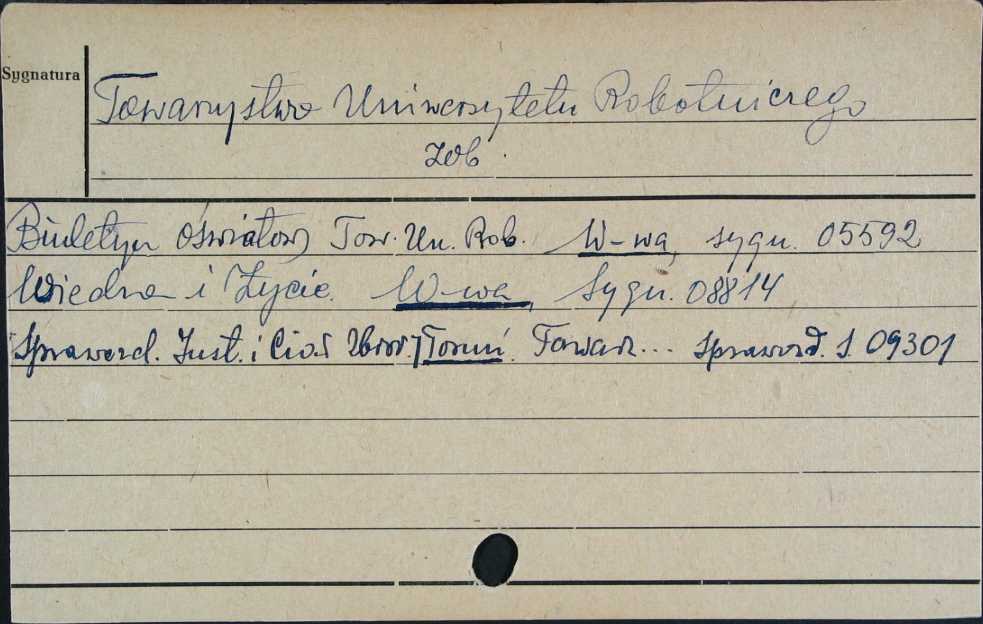 Sygnatura
Towarzystwo Uniwersytetu Robotniczego
zob.
Biuletyn Oświatowy Tow. Un. Rob. W-wa, sygn. 05592
Wiedza i Życie. W-wa, Sygn. 08814
Sprawozd. Inst. i Ciał Zbior. Toruń. Towarz... Sprawozd. S. 09301